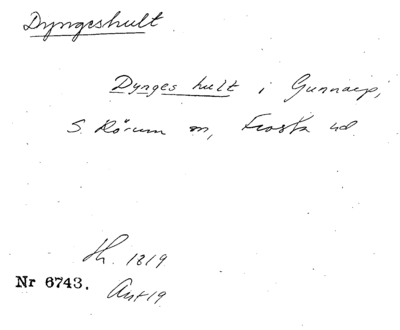 Dyngeshult
Dynges hult i Gunnarp,
S. Rörum sn, Frosta hd.
Hr. 1819
Nr 6743. Ant 19